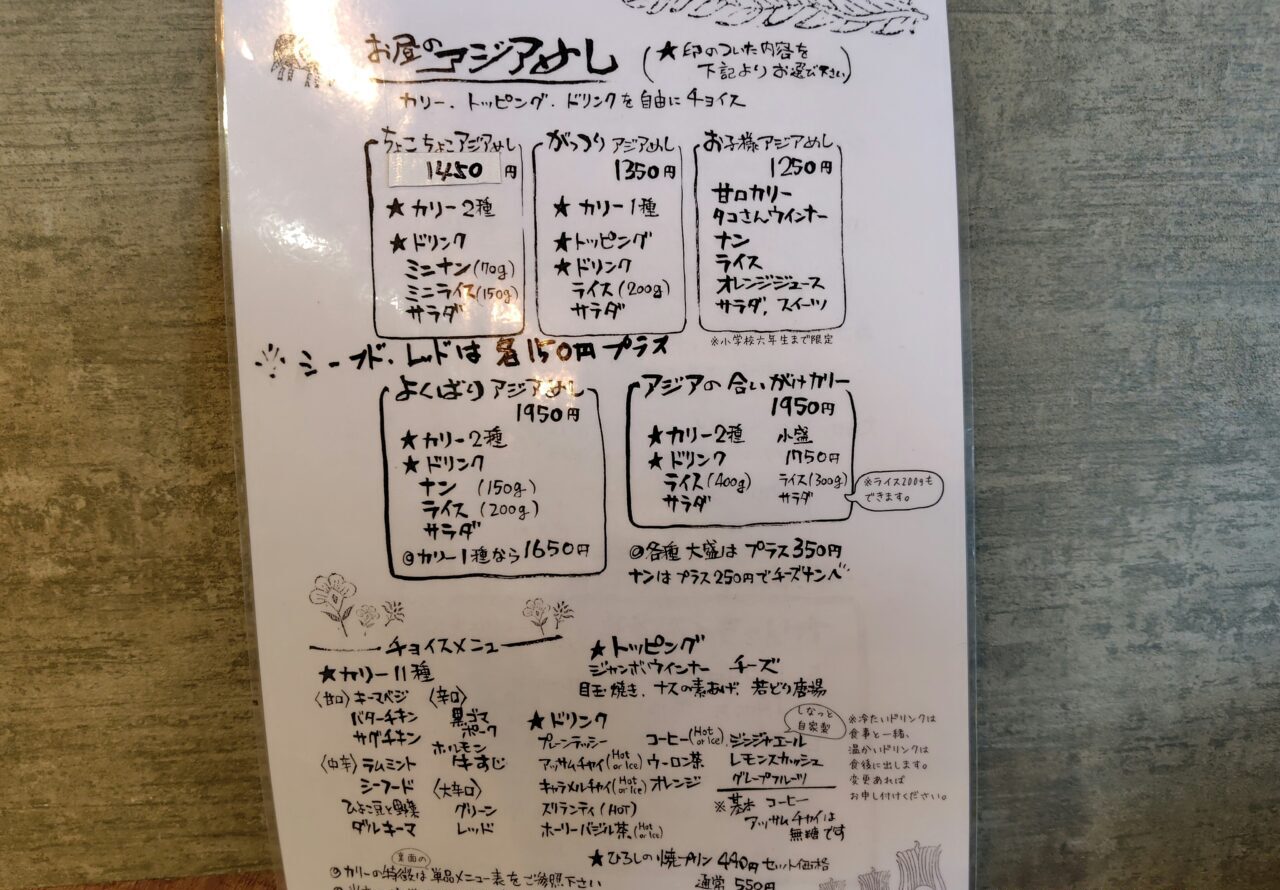 お昼のアジアめし
(★印のついた内容を
下記よりお選び下さい)
カリー、トッピング、ドリンクを自由にチョイス
ちょこちょこアジアめし
1450円
★カリー2種
★ドリンク
ミニナン(70g)
ミニライス(150g)
サラダ
がっつりアジアめし
1350円
★カリー1種
★トッピング
★ドリンク
ライス(200g)
サラダ
お子様アジアめし
1250円
甘口カリー
タコさんウインナー
ナン
ライス
オレンジジュース
サラダ、スイーツ
※小学校六年生まで限定
シーフード、レッドは各150円プラス
よくばりアジアめし
1950円
★カリー2種
★ドリンク
ナン (150g)
ライス (200g)
サラダ
◎カリー1種なら1650円
アジアの合いがけカリー
1950円
★カリー2種
★ドリンク
ライス(400g)
サラダ
小盛
1750円
ライス(300g)
サラダ
※ライス200gも
できます。
◎各種大盛はプラス350円
ナンはプラス250円でチーズナンへ
チョイスメニュー
★カリー11種
〈甘口〉キーマベジ
バターチキン
サグチキン
〈中辛〉ラムミント
シーフード
ひよこ豆と野菜
ダルキーマ
〈辛口〉
黒ゴマ
ポーク
ホルモン
牛すじ
〈大辛口〉
グリーン
レッド
★トッピング
ジャンボウインナー チーズ
目玉焼き、ナスの素あげ、若どり唐揚
★ドリンク
プレーンラッシー
アッサムチャイ(Hot or Ice)
キャラメルチャイ(Hot or Ice)
スリランティ(HOT)
ホーリーバジル茶(Hot or Ice)
コーヒー(Hot or Ice)
ウーロン茶
オレンジ
しなっと
自家製
ジンジャエール
レモンスカッシュ
グレープフルーツ
※基本 コーヒー
アッサムチャイは
無糖です
※冷たいドリンクは
食事と一緒、
温かいドリンクは
食後に出します。
変更あれば
お申し付けください。
★ひろしの焼プリン 440円セット価格
通常 550円
裏面の
◎カリーの特徴は単品メニュー表をご参照下さい